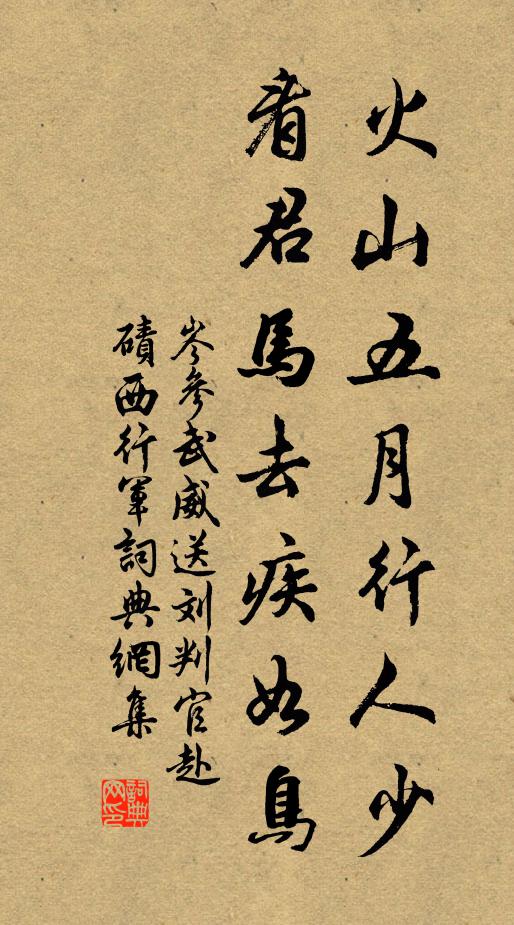 火山五月行人少
看君馬去疾如鳥
岑參武威送刘判官赴
磧西行軍詞典網集
詞典
网印